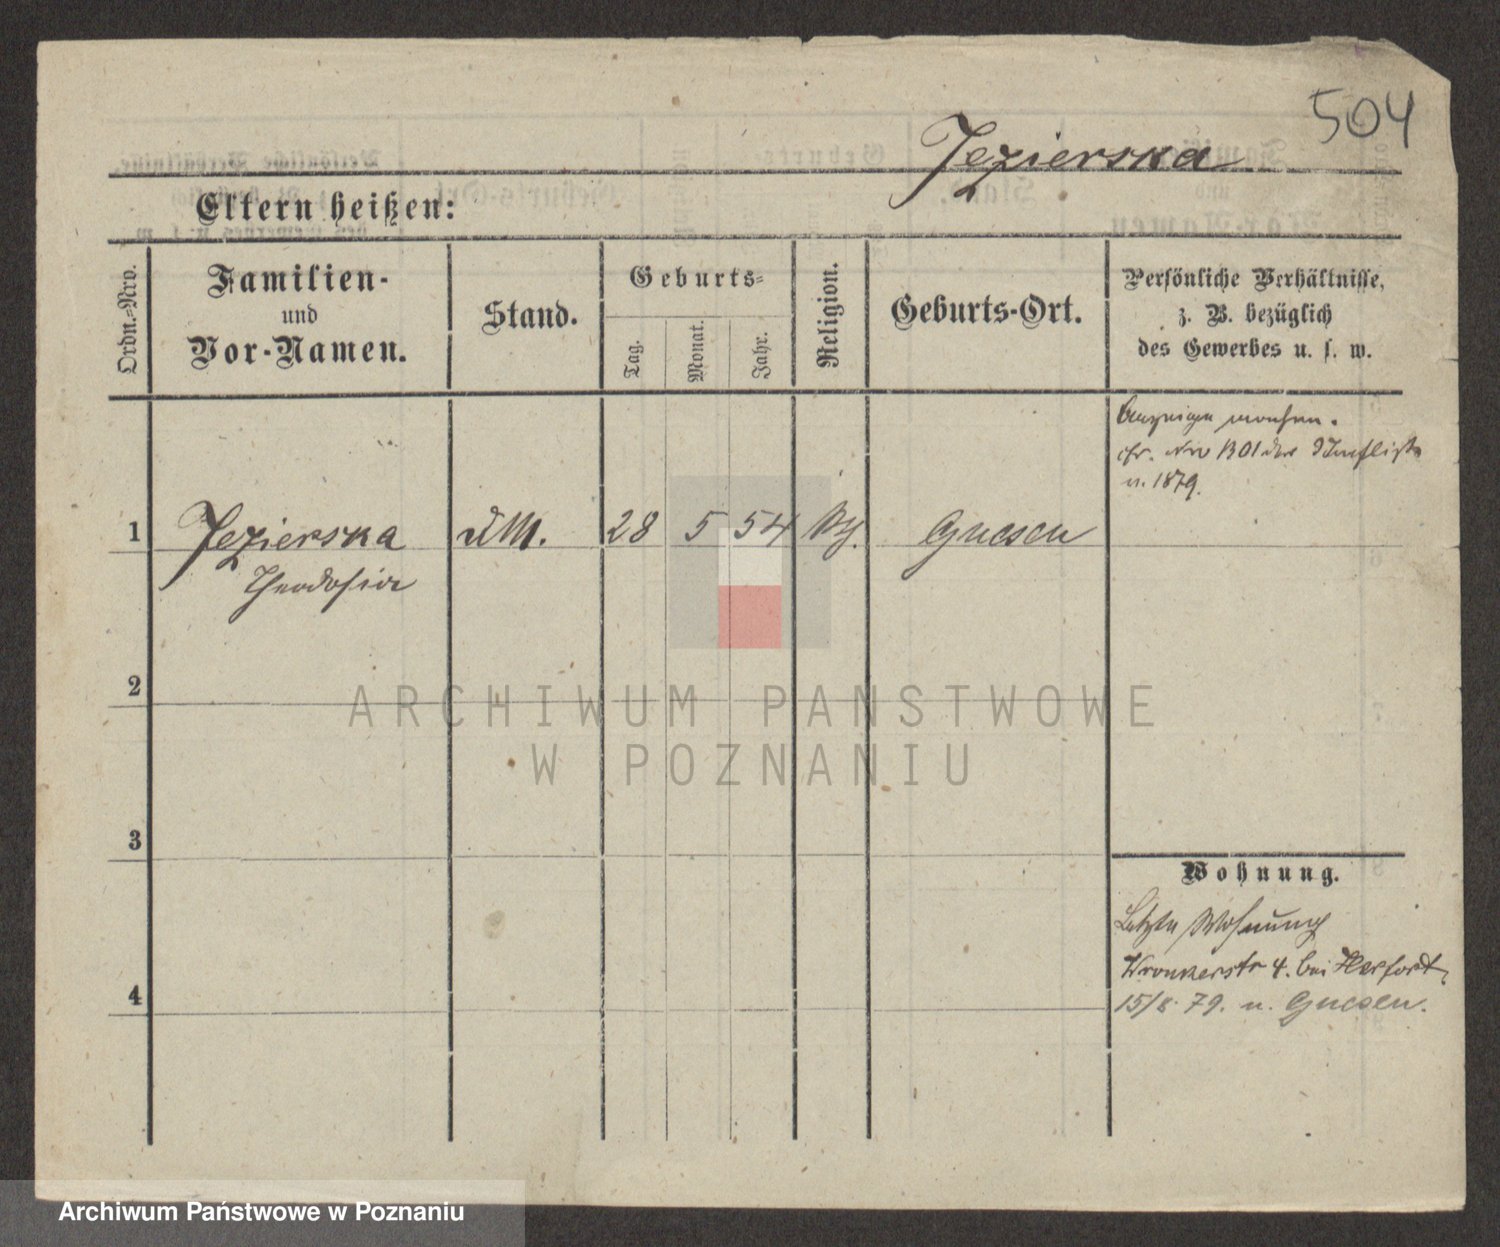 504
Jezierska
Eltern heißen:
Ordn.-Nro.
Familien-
und
Vor-Namen.
Stand.
Geburts-
Tag.
Monat.
Jahr.
Religion.
Geburts-Ort.
Persönliche Verhältnisse,
z. B. bezüglich
des Gewerbes u. s. w.
cfr. Nro 1301 der
1879.
1
Jezierska
Theodosia
28
5
54
Gnesen
2
ARCHIWUM PANSTWOWE
W POZNANIU
3
Wohnung.
Letzte Wohnung
Wronkerstr 4. bei Herfort,
4
15/8. 79. n. Gnesen.
Archiwum Państwowe w Poznaniu